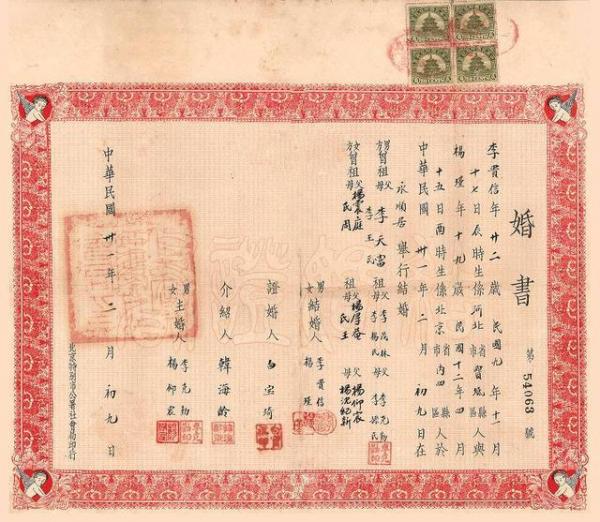 婚書
第 54063 號
李貫信年廿二歲民國九年十一月
十七日辰時生係河北省市寶坻縣區人與
楊瑾年十九歲民國十二年四月
十五日酉時生係北京省市內四縣區人於
中華民國卅一年二月初九日在
永順居舉行結婚
男方曾祖父李天富 祖父李茂林 父李克勤
母李王氏 祖母李楊氏 母李
女方曾祖父楊庭 祖父楊厚菴 父楊仰宸
母氏周 祖母氏王 母楊沈紀新
男女結婚人 李貫信 楊瑾
證婚人 白宝琦
介紹人 韓海齡
男女主婚人 李克勤 楊仰宸
中華民國卅一年二月初九日
北京特別市公署社會局印行